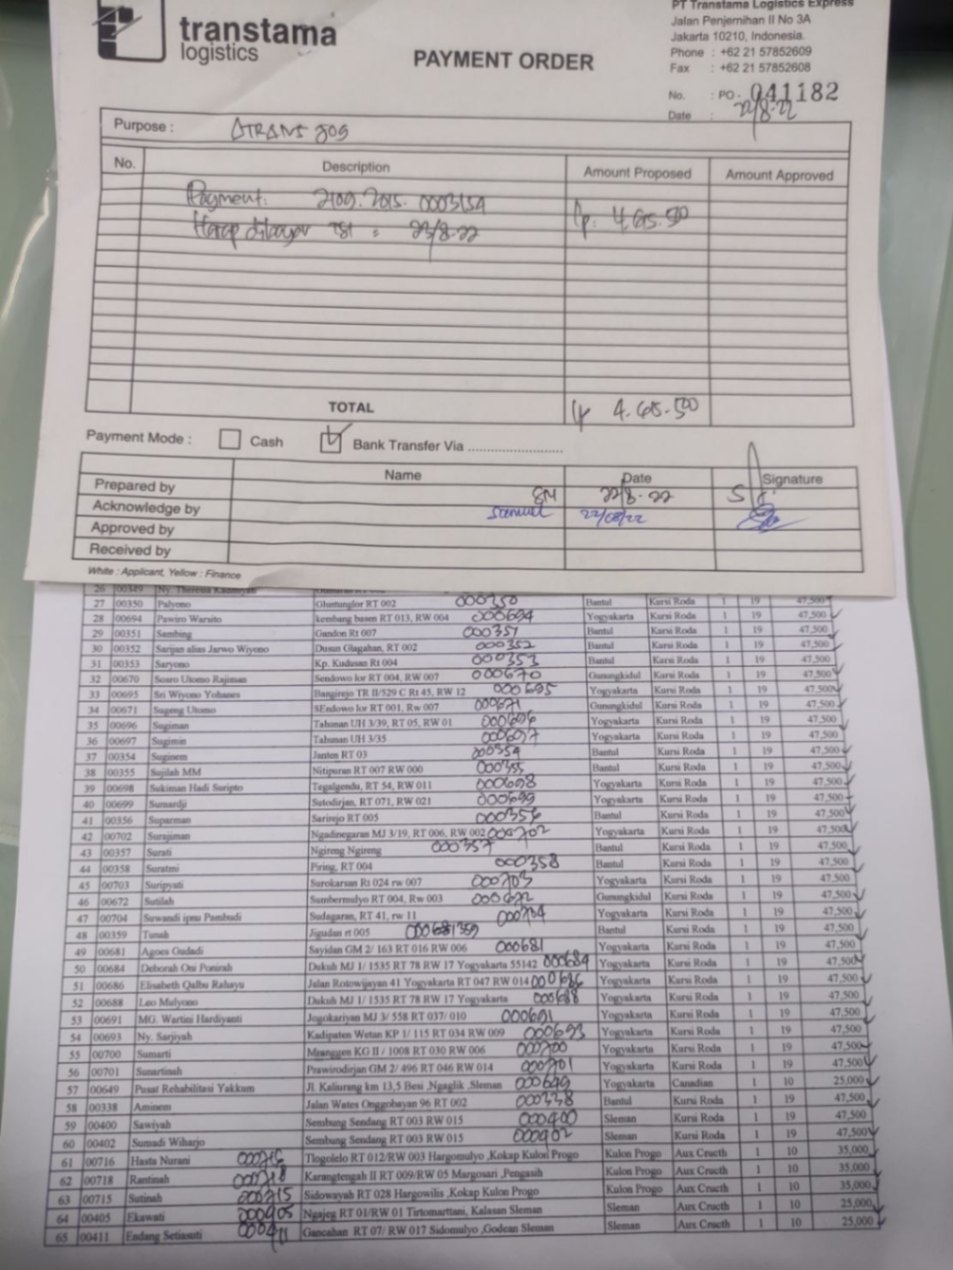 transtama
logistics
PAYMENT ORDER
PT Transtama Logistics Express
Jalan Penjernihan II No 3A
Jakarta 10210, Indonesia.
Phone : +62 21 57852609
Fax : +62 21 57852608
No. : PO - 041182
Date : 22/8-22
Purpose : ATRANS JOG
No. Description Amount Proposed Amount Approved
Payment: 0003154
Harap dibayar TGL : 23/8-22
TOTAL
Payment Mode : Cash Bank Transfer Via
Name Date Signature
Prepared by 22/8-22
Acknowledge by Samuel 22/08/22
Approved by
Received by
White : Applicant, Yellow : Finance
27 00350 Palyono RT 002 000350 Bantul Kursi Roda 1 19 47,500
28 00694 Pawiro Warsito kembang basen RT 013, RW 004 000694 Yogyakarta Kursi Roda 1 19 47,500
29 00351 Sambing Gandon Rt 007 000351 Bantul Kursi Roda 1 19 47,500
30 00352 Sarijan alias Jarwo Wiyono Dusun Glagahan, RT 002 000352 Bantul Kursi Roda 1 19 47,500
31 00353 Saryono Kp. Kudusan Rt 004 000353 Bantul Kursi Roda 1 19 47,500
32 00670 Sosro Utomo Rajiman Sendowo lor RT 004, RW 007 000670 Gunungkidul Kursi Roda 1 19 47,500
33 00695 Sri Wiyono Yohanes Bangirejo TR II/529 C Rt 45, RW 12 000695 Yogyakarta Kursi Roda 1 19 47,500
34 00671 Sugeng Utomo SEndowo lor RT 001, Rw 007 000671 Gunungkidul Kursi Roda 1 19 47,500
35 00696 Sugiman Tahunan UH 3/39, RT 05, RW 01 000696 Yogyakarta Kursi Roda 1 19 47,500
36 00697 Sugimin Tahunan UH 3/35 000697 Yogyakarta Kursi Roda 1 19 47,500
37 00354 Suginem Janten RT 03 000354 Bantul Kursi Roda 1 19 47,500
38 00355 Sujilah MM Nitipuran RT 007 RW 000 000355 Bantul Kursi Roda 1 19 47,500
39 00698 Sukiman Hadi Suripto Tegalgendu, RT 54, RW 011 000698 Yogyakarta Kursi Roda 1 19 47,500
40 00699 Sumardji Sutodirjan, RT 071, RW 021 000699 Yogyakarta Kursi Roda 1 19 47,500
41 00356 Suparman Sarirejo RT 005 000356 Bantul Kursi Roda 1 19 47,500
42 00702 Surajiman Ngadinegaran MJ 3/19, RT 006, RW 002 000702 Yogyakarta Kursi Roda 1 19 47,500
43 00357 Surati Ngireng Ngireng 000357 Bantul Kursi Roda 1 19 47,500
44 00358 Suratmi Piring, RT 004 000358 Bantul Kursi Roda 1 19 47,500
45 00703 Suripyati Surokarsan Rt 024 rw 007 000703 Yogyakarta Kursi Roda 1 19 47,500
46 00672 Sutilah Sumbermulyo RT 004, Rw 003 000672 Gunungkidul Kursi Roda 1 19 47,500
47 00704 Suwandi ipnu Pambudi Sudagaran, RT 41, rw 11 000704 Yogyakarta Kursi Roda 1 19 47,500
48 00359 Tunah Jigudan rt 005 Bantul Kursi Roda 1 19 47,500
49 00681 Agoes Gudadi Sayidan GM 2/ 163 RT 016 RW 006 000681 Yogyakarta Kursi Roda 1 19 47,500
50 00684 Deborah Oni Ponirah Dukuh MJ 1/ 1535 RT 78 RW 17 Yogyakarta 55142 000684 Yogyakarta Kursi Roda 1 19 47,500
51 00686 Elisabeth Qalbu Rahayu Jalan Rotowijayan 41 Yogyakarta RT 047 RW 014 000686 Yogyakarta Kursi Roda 1 19 47,500
52 00688 Leo Mulyono Dukuh MJ 1/ 1535 RT 78 RW 17 Yogyakarta 000688 Yogyakarta Kursi Roda 1 19 47,500
53 00691 MG. Wartini Hardiyanti Jogokariyan MJ 3/ 558 RT 037/ 010 000691 Yogyakarta Kursi Roda 1 19 47,500
54 00693 Ny. Sarjiyah Kadipaten Wetan KP 1/ 115 RT 034 RW 009 000693 Yogyakarta Kursi Roda 1 19 47,500
55 00700 Sumarti Mranggen KG II / 1008 RT 030 RW 006 000700 Yogyakarta Kursi Roda 1 19 47,500
56 00701 Sumartinah Prawirodirjan GM 2/ 496 RT 046 RW 014 000701 Yogyakarta Kursi Roda 1 19 47,500
57 00649 Pusat Rehabilitasi Yakkum Jl. Kaliurang km 13,5 Besi ,Ngaglik ,Sleman 000649 Yogyakarta Canadian 1 10 25,000
58 00338 Aminem Jalan Wates Onggobayan 96 RT 002 000338 Bantul Kursi Roda 1 19 47,500
59 00400 Sawiyah Sembung Sendang RT 003 RW 015 000400 Sleman Kursi Roda 1 19 47,500
60 00402 Sumadi Wiharjo Sembung Sendang RT 003 RW 015 000402 Sleman Kursi Roda 1 19 47,500
61 00716 Hasta Nurani 000716 Tlogolelo RT 012/RW 003 Hargomulyo ,Kokap Kulon Progo Kulon Progo Aux Cructh 1 10 35,000
62 00718 Rantinah 000718 Karangtengah II RT 009/RW 05 Margosari ,Pengasih Kulon Progo Aux Cructh 1 10 35,000
63 00715 Sutinah 000715 Sidowayah RT 028 Hargowilis ,Kokap Kulon Progo Kulon Progo Aux Cructh 1 10 35,000
64 00405 Ekawati 000405 Ngajeg RT 01/RW 01 Tirtomarttani, Kalasan Sleman Sleman Aux Cructh 1 10 25,000
65 00411 Endang Setiasuti 000411 Gancahan RT 07/ RW 017 Sidomulyo ,Godean Sleman Sleman Aux Cructh 1 10 25,000